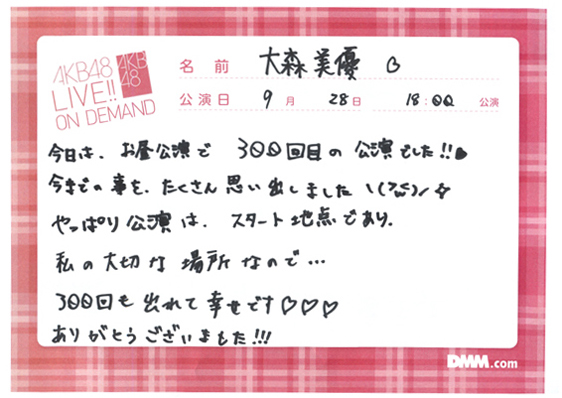 AKB48
LIVE!!
ON DEMAND
AKB
48
名前 大森美優 ♡
公演日 9月 28日 18:00 公演
今日は、お昼公演で 300回目の 公演でした!!♥
今までの事を、たくさん思い出しました
やっぱり公演は、スタート地点であり、
私の大切な場所なので…
300回も出れて幸せです♡♡♡
ありがとうございました!!!
DMM.com